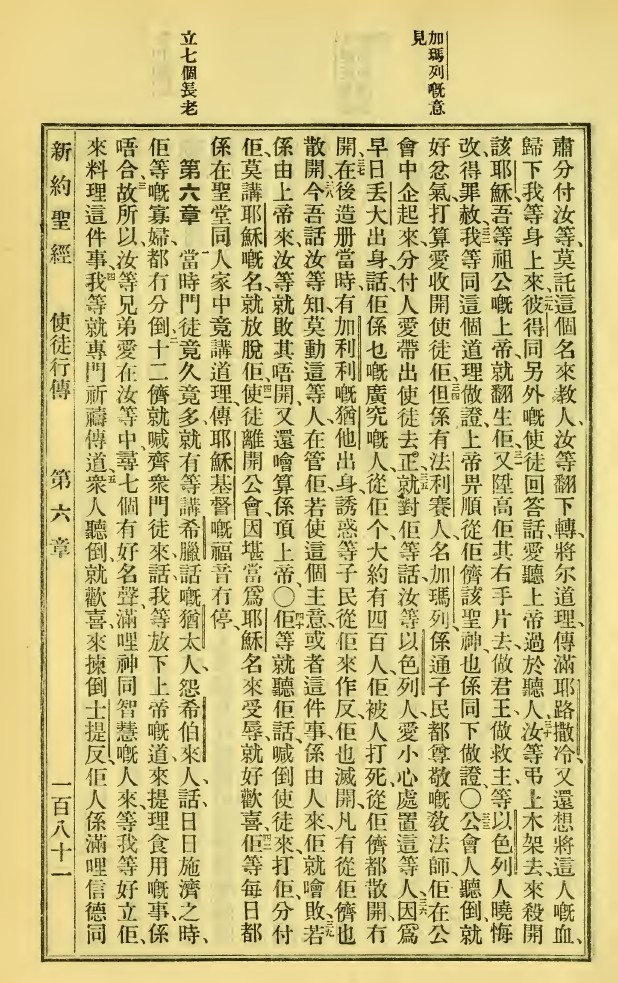 加瑪列嘅意
見
立七個長老
肅分付汝等、莫託這個名來教人、汝等翻下轉、將尔道理傳滿耶路撒冷、又還想將這人嘅血、
歸下我等身上來、二九彼得同另外嘅使徒回答話、愛聽上帝過於聽人、三十汝等弔上木架去來殺開
該耶穌、吾等祖公嘅上帝、就翻生佢、三一又陞高佢其右手片去、做君王、做救主、等以色列人曉悔
改、得罪赦、三二我等同這個道理做證、上帝畀順從佢儕該聖神、也係同下做證、〇三三公會人聽倒、就
好忿氣、打算愛收開使徒佢、三四但係有法利賽人、名加瑪列、係通子民都尊敬嘅教法師、佢在公
會中企起來、分付人愛帶出使徒去、三五正就對佢等話、汝等以色列人、愛小心處置這等人、三六因爲
早日丟大出身、話佢係乜嘅廣究嘅人、從佢个大約有四百人、佢被人打死、從佢儕都散開冇
開、三七在後造册當時、有加利利嘅猶他出身、誘惑等子民從佢來作反、佢也滅開、凡有從佢儕也
散開、三八今吾話汝等知、莫動這等人、在管佢、若使這個主意、或者這件事、係由人來、佢就噲敗、三九若
係由上帝來、汝等就敗其唔開、又還噲算係頂上帝、〇四十佢等就聽佢話、喊倒使徒來打佢、分付
佢、莫講耶穌嘅名、就放脫佢、四一使徒離開公會、因堪當爲耶穌名來受辱、就好歡喜、四二佢等每日都
係在聖堂同人家中竟講道理、傳耶穌基督嘅福音冇停、
第六章　一當時門徒竟久竟多、就有等講希臘話嘅猶太人、怨希伯來人、話日日施濟之時、
佢等嘅寡婦都冇分倒、二十二儕就喊齊衆門徒來、話、我等放下上帝嘅道、來提理食用嘅事、係
唔合、三故所以汝等兄弟、愛在汝等中、尋七個有好名聲、滿哩神同智慧嘅人來、等我等好立佢、
來料理這件事、四我等就專門祈禱傳道、五衆人聽倒、就歡喜、來揀倒士提反、佢人係滿哩信德同
新約聖經　使徒行傳　第六章　一百八十一